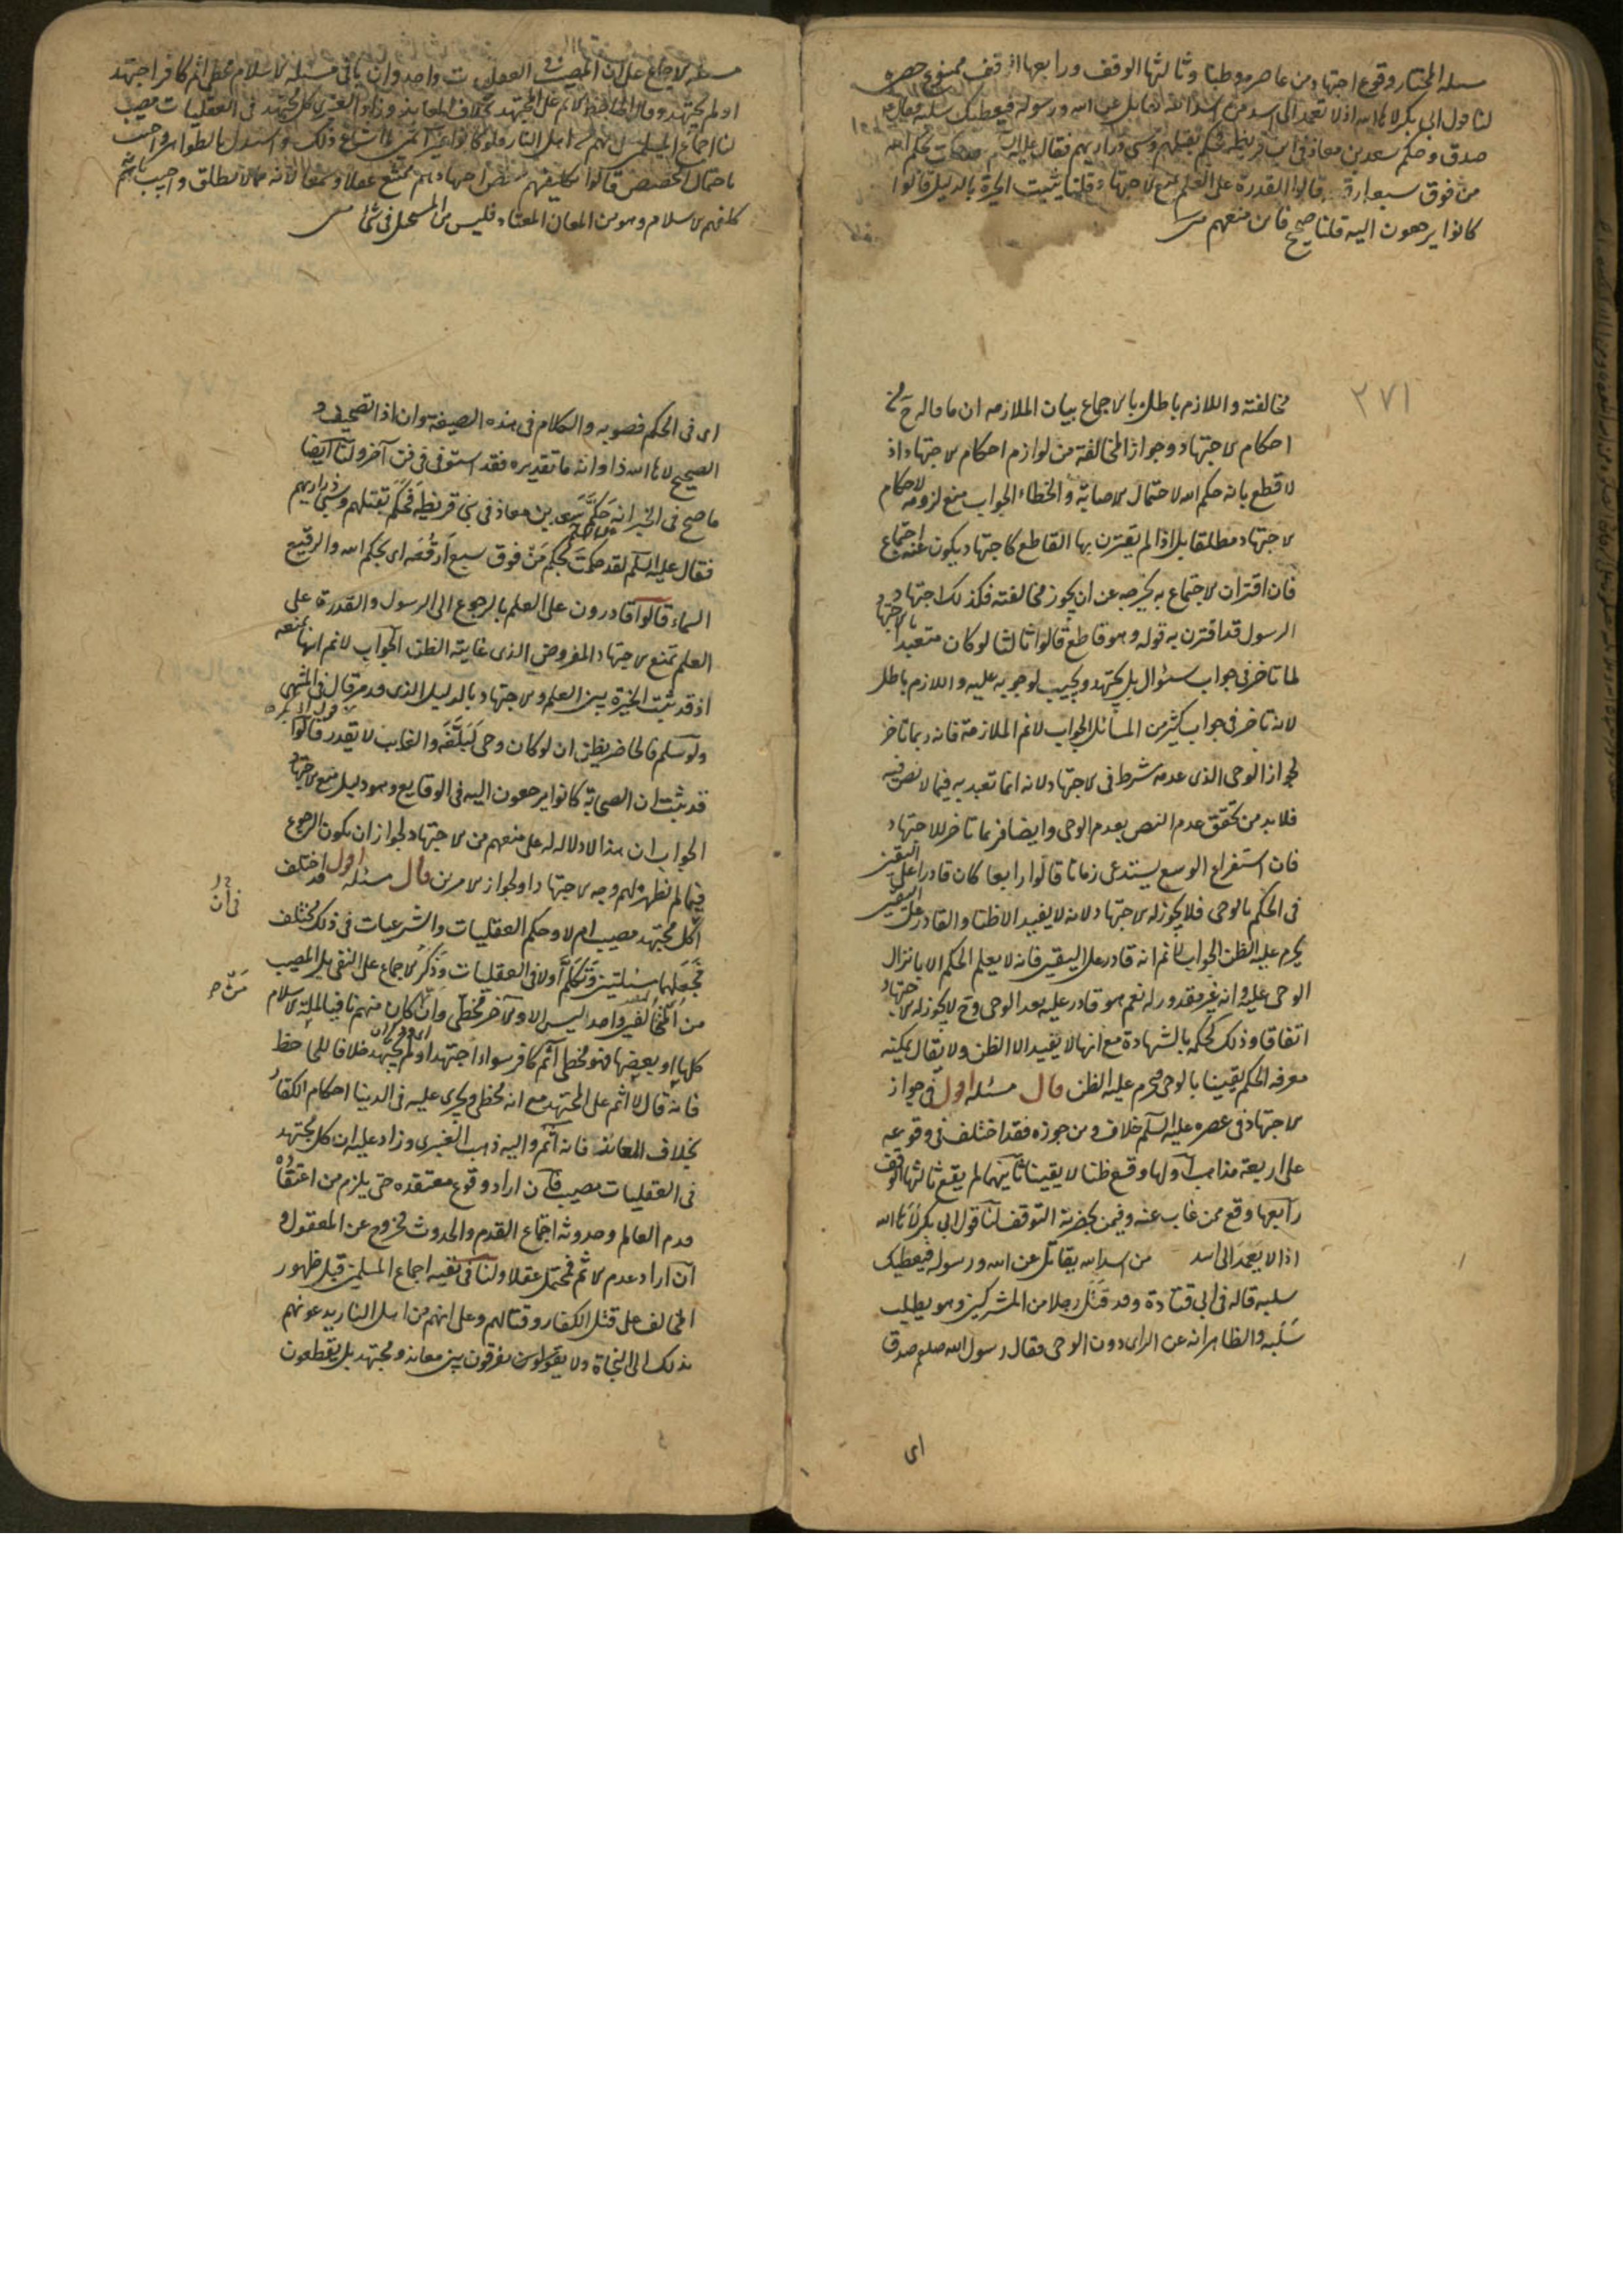 مسئلة المختار وقوع اجتهاد من عاصره ظنا وثالثها الوقف ورابعها
لنا قول ابى بكر لاها الله اذا لا يعمد الى اسد من اسد الله يقاتل عن الله ورسوله فيعطيك سلبه فقال
صدق وحكم سعد بن معاذ فى بنى قريظة فحكم بقتلهم وسبى ذراريهم فقال عليه لقد حكمت بحكم الله
من فوق سبعة ارقعة قالوا القدرة على العلم تمنع الاجتهاد قلنا يثبت الخيرة بالدليل قالوا
كانوا يرجعون اليه قلنا صحيح فاين منعهم
٢٧١
مخالفته واللازم باطل بالاجماع بيان الملازمه ان ما قاله ح من
احكام الاجتهاد وجواز المخالفة من لوازم احكام الاجتهاد اذ
لا قطع بانه حكم الله لاحتمال الاصابة والخطاء الجواب منع لزومه لاحكام
الاجتهاد مطلقا بل اذا لم يقترن بها القاطع كاجتهاد يكون عنه اجماع
فان اقتران الاجماع به يخرجه عن ان يجوز مخالفته فكذلك اجتهاد
الرسول قد اقترن به قوله وهو قاطع قالوا ثالثا لو كان متعبدا بالاجتهاد
لما تاخر فى جواب سئوال بل يجتهد ويجيب لوجوبه عليه واللازم باطل
لانه تاخر فى جواب كثير من المسائل الجواب لا نم الملازمة فانه ربما تاخر
لجواز الوحى الذى عدمه شرط فى الاجتهاد لانه انما تعبد به فيما لا نص فيه
فلا بد من تحقق عدم النص بعدم الوحى وايضا فربما تاخر للاجتهاد
فان استفراغ الوسع يستدعى زمانا قالوا رابعا كان قادرا على اليقين
فى الحكم بالوحى فلا يجوز له الاجتهاد لانه لا يفيد الا ظنا والقادر على اليقين
يحرم عليه الظن الجواب لا نم انه قادر على اليقين فانه لا يعلم الحكم الا بانزال
الوحى عليه وانه غير مقدور له نعم هو قادر عليه بعد الوحى وح لا يجوز له الاجتهاد
اتفاقا وذلك كحكمه بالشهادة مع انها لا يفيد الا الظن ولا يقال يمكنه
معرفه الحكم يقينا بالوحى فيحرم عليه الظن قال مسئله اقول فى جواز
الاجتهاد فى عصره عليه السلم خلاف ومن جوزه فقد اختلف فى وقوعه
على اربعة مذاهب اولها وقع ظنا لا يقينا ثانيها لم يقع ثالثها الوقف
رابعها وقع ممن غاب عنه وفيمن بحضرته التوقف لنا قول ابى بكر لاها الله
اذا لا يعمد الى اسد من اسد الله يقاتل عن الله ورسوله فيعطيك
سلبه قاله فى ابى قتادة وقد قتل رجلا من المشركين وهو يطلب
سلبه والظاهر انه عن الراى دون الوحى فقال رسول الله صلعم صدق
اى
مسئلة الاجماع على ان المصيب فى العقليات واحد وان نافى ملة الاسلام مخطئ اثم كافر اجتهد
او لم يجتهد وقال الجاحظ لا اثم على المجتهد بخلاف المعاند وزاد العنبرى كل مجتهد فى العقليات مصيب
لنا اجماع المسلمين انهم من اهل النار ولو كانوا غير آثمين لما ساغ ذلك واستدل بالظواهر واجيب
باحتمال التخصيص قالوا تكليفهم نقيض اجتهادهم ممتنع عقلا وسمعا لانه مما لا يطلق واجيب بانه
كلفهم الاسلام وهو من المعتاد فليس من المستحيل فى شئ
اى فى الحكم فصوبه والكلام فى هذه الصيغة وان اذا تصحيف و
الصحيح لاها الله ذا وانه ما تقديره فقد استوفى فى فن آخر ولنا ايضا
ما صح فى الخبر انه حكم سعد بن معاذ فى بنى قريظة فحكم بقتلهم وسبى ذراريهم
فقال عليه السلم لقد حكمت بحكم من فوق سبع ارقعه اى بحكم الله والرقيع
السماء قالوا قادرون على العلم بالرجوع الى الرسول والقدرة على
العلم تمنع الاجتهاد المفروض الذى غايته الظن الجواب لا نم انها تمنعه
اذ قد ثبت الخيرة بين العلم والاجتهاد بالدليل الذى قدمر قال فى المنتهى
ولو سلم فالحاضر يظن ان لو كان وحى لبلغه والغايب لا يقدر قالوا
قد ثبت ان الصحابة كانوا يرجعون اليه فى الوقايع وهو دليل منع الاجتهاد
الجواب ان هذا لا دلاله له على منعهم من الاجتهاد لجواز ان يكون الرجوع
فيما لم يظهر لهم وجه الاجتهاد او لجواز الامرين قال مسئله اقول قد اختلف
اكل مجتهد مصيب ام لا وحكم العقليات والشرعيات فى ذلك مختلف
فجعلها مسئلتين وتكلم اولا فى العقليات وذكر الاجماع على النفى بل المصيب
من المختلفين واحد ليس الا والآخر مخطئ وان كان منهم نافيا لملة الاسلام
كلها او بعضها فهو مخطئ آثم كافر سواء اجتهد او لم يجتهد خلافا للجاحظ
فانه قال لا اثم على المجتهد مع انه مخطئ ويجرى عليه فى الدنيا احكام الكفار
بخلاف المعاند فانه آثم واليه ذهب العنبرى وزاد عليه ان كل مجتهد
فى العقليات مصيب فان اراد وقوع معتقده حتى يلزم من اعتقاده
قدم العالم وحدوثه اجتماع القدم والحدوث فخروج عن المعقول و
ان اراد عدم الاثم فمحتمل عقلا ولنا فى نفيه اجماع المسلمين قبل ظهور
المخالف على قتل الكفار وقتالهم وعلى انهم من اهل النار يدعونهم
بذلك الى النجاة ولا يفرقون بين معاند ومجتهد بل يقطعون